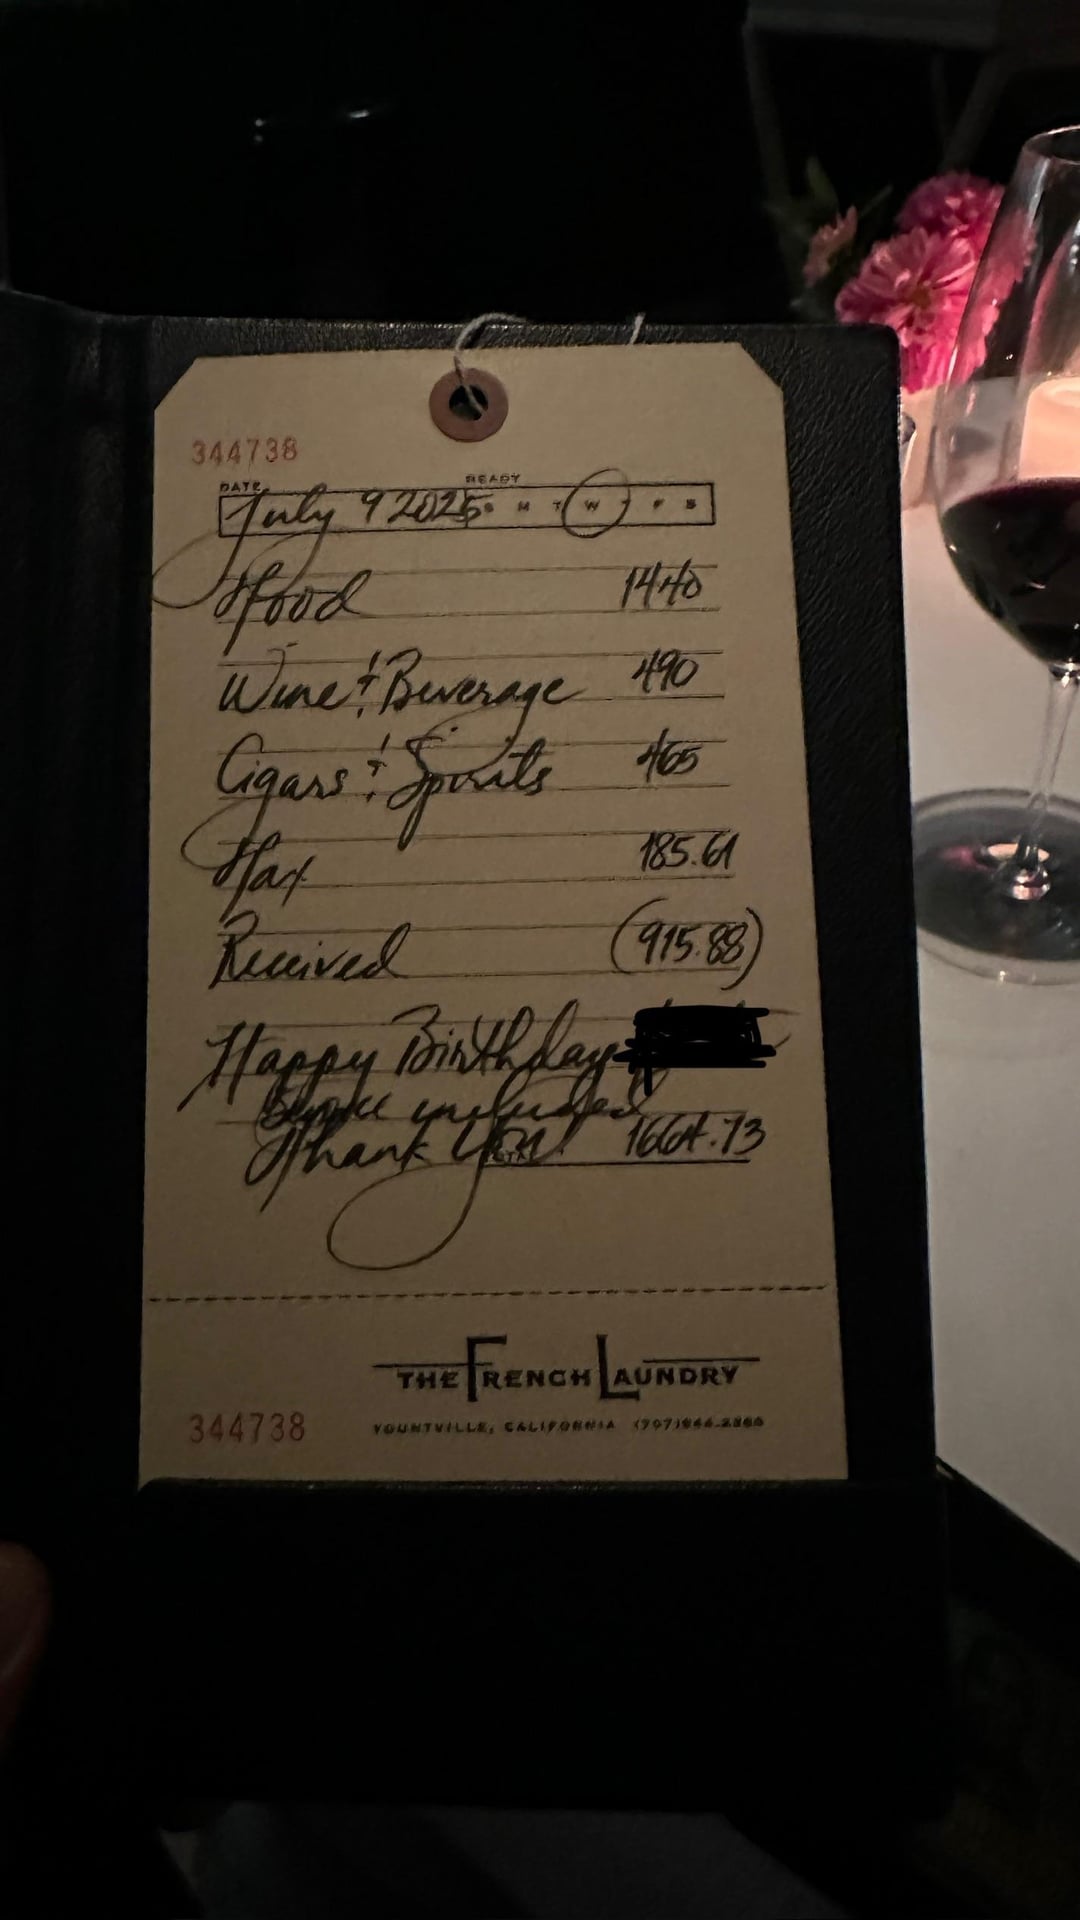 344738
DATE READY
July 9 2025 S M T W T F S
Food 1440
Wine & Beverage 490
Cigars & Spirits 465
Tax 185.61
Received (915.88)
Happy Birthday
Service included
Thank You! 1664.73
THE FRENCH LAUNDRY
344738
YOUNTVILLE, CALIFORNIA (707) 944-2380